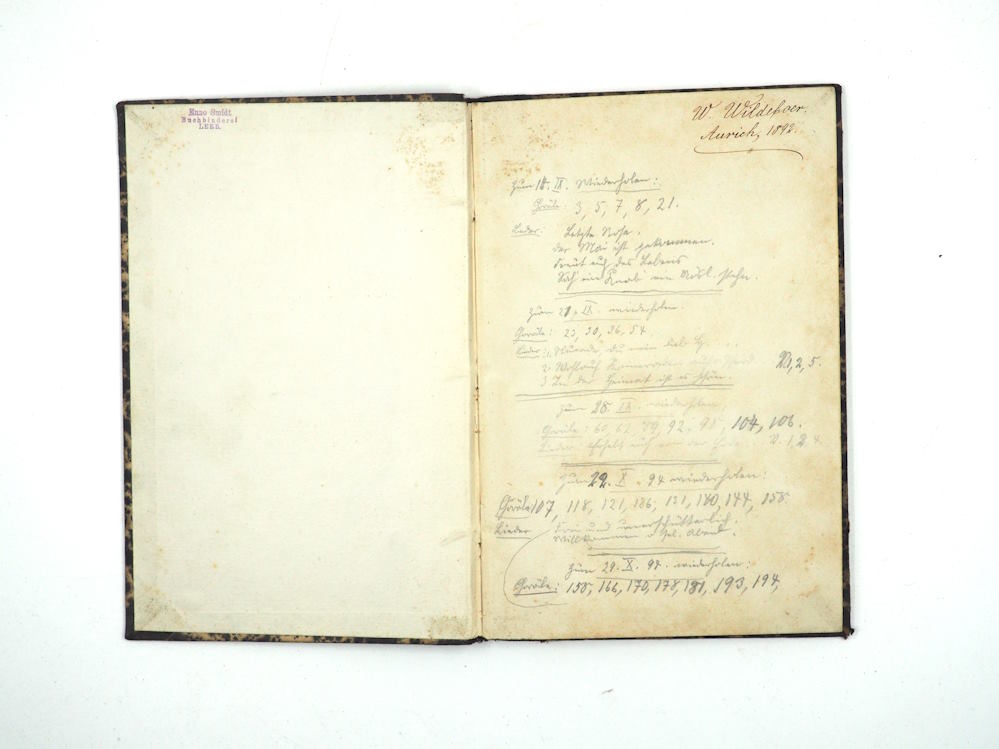 Enno Smidt
Buchbinderei
LEER.
W. Wildeboer.
Aurich, 1892.
Zum 14. IX. Wiederholen:
Choräle: 3, 5, 7, 8, 21.
Lieder: Letzte Rose.
der Mai ist gekommen.
Freut euch des Lebens
Sah ein Knab ein Rösl. stehn.
Zum 21. IX. wiederholen.
Choräle: 23, 30, 36, 54
Lieder: 1.
2. Wohlauf Kameraden
3 In der Heimat ist es schön.
V. 1, 2, 5.
Zum 28. IX. wiederholen,
Choräle: 60, 62, 79, 92, 98, 104, 106.
Lieder:
Zum 22. X. 94 wiederholen:
Choräle 107, 118, 121, 126, 131, 140, 144, 158
Lieder Frei und unerschütterlich.
Willkommen o sel. Abend.
Zum 29. X. 94. wiederholen:
Choräle: 158, 166, 170, 178, 181, 193, 194,